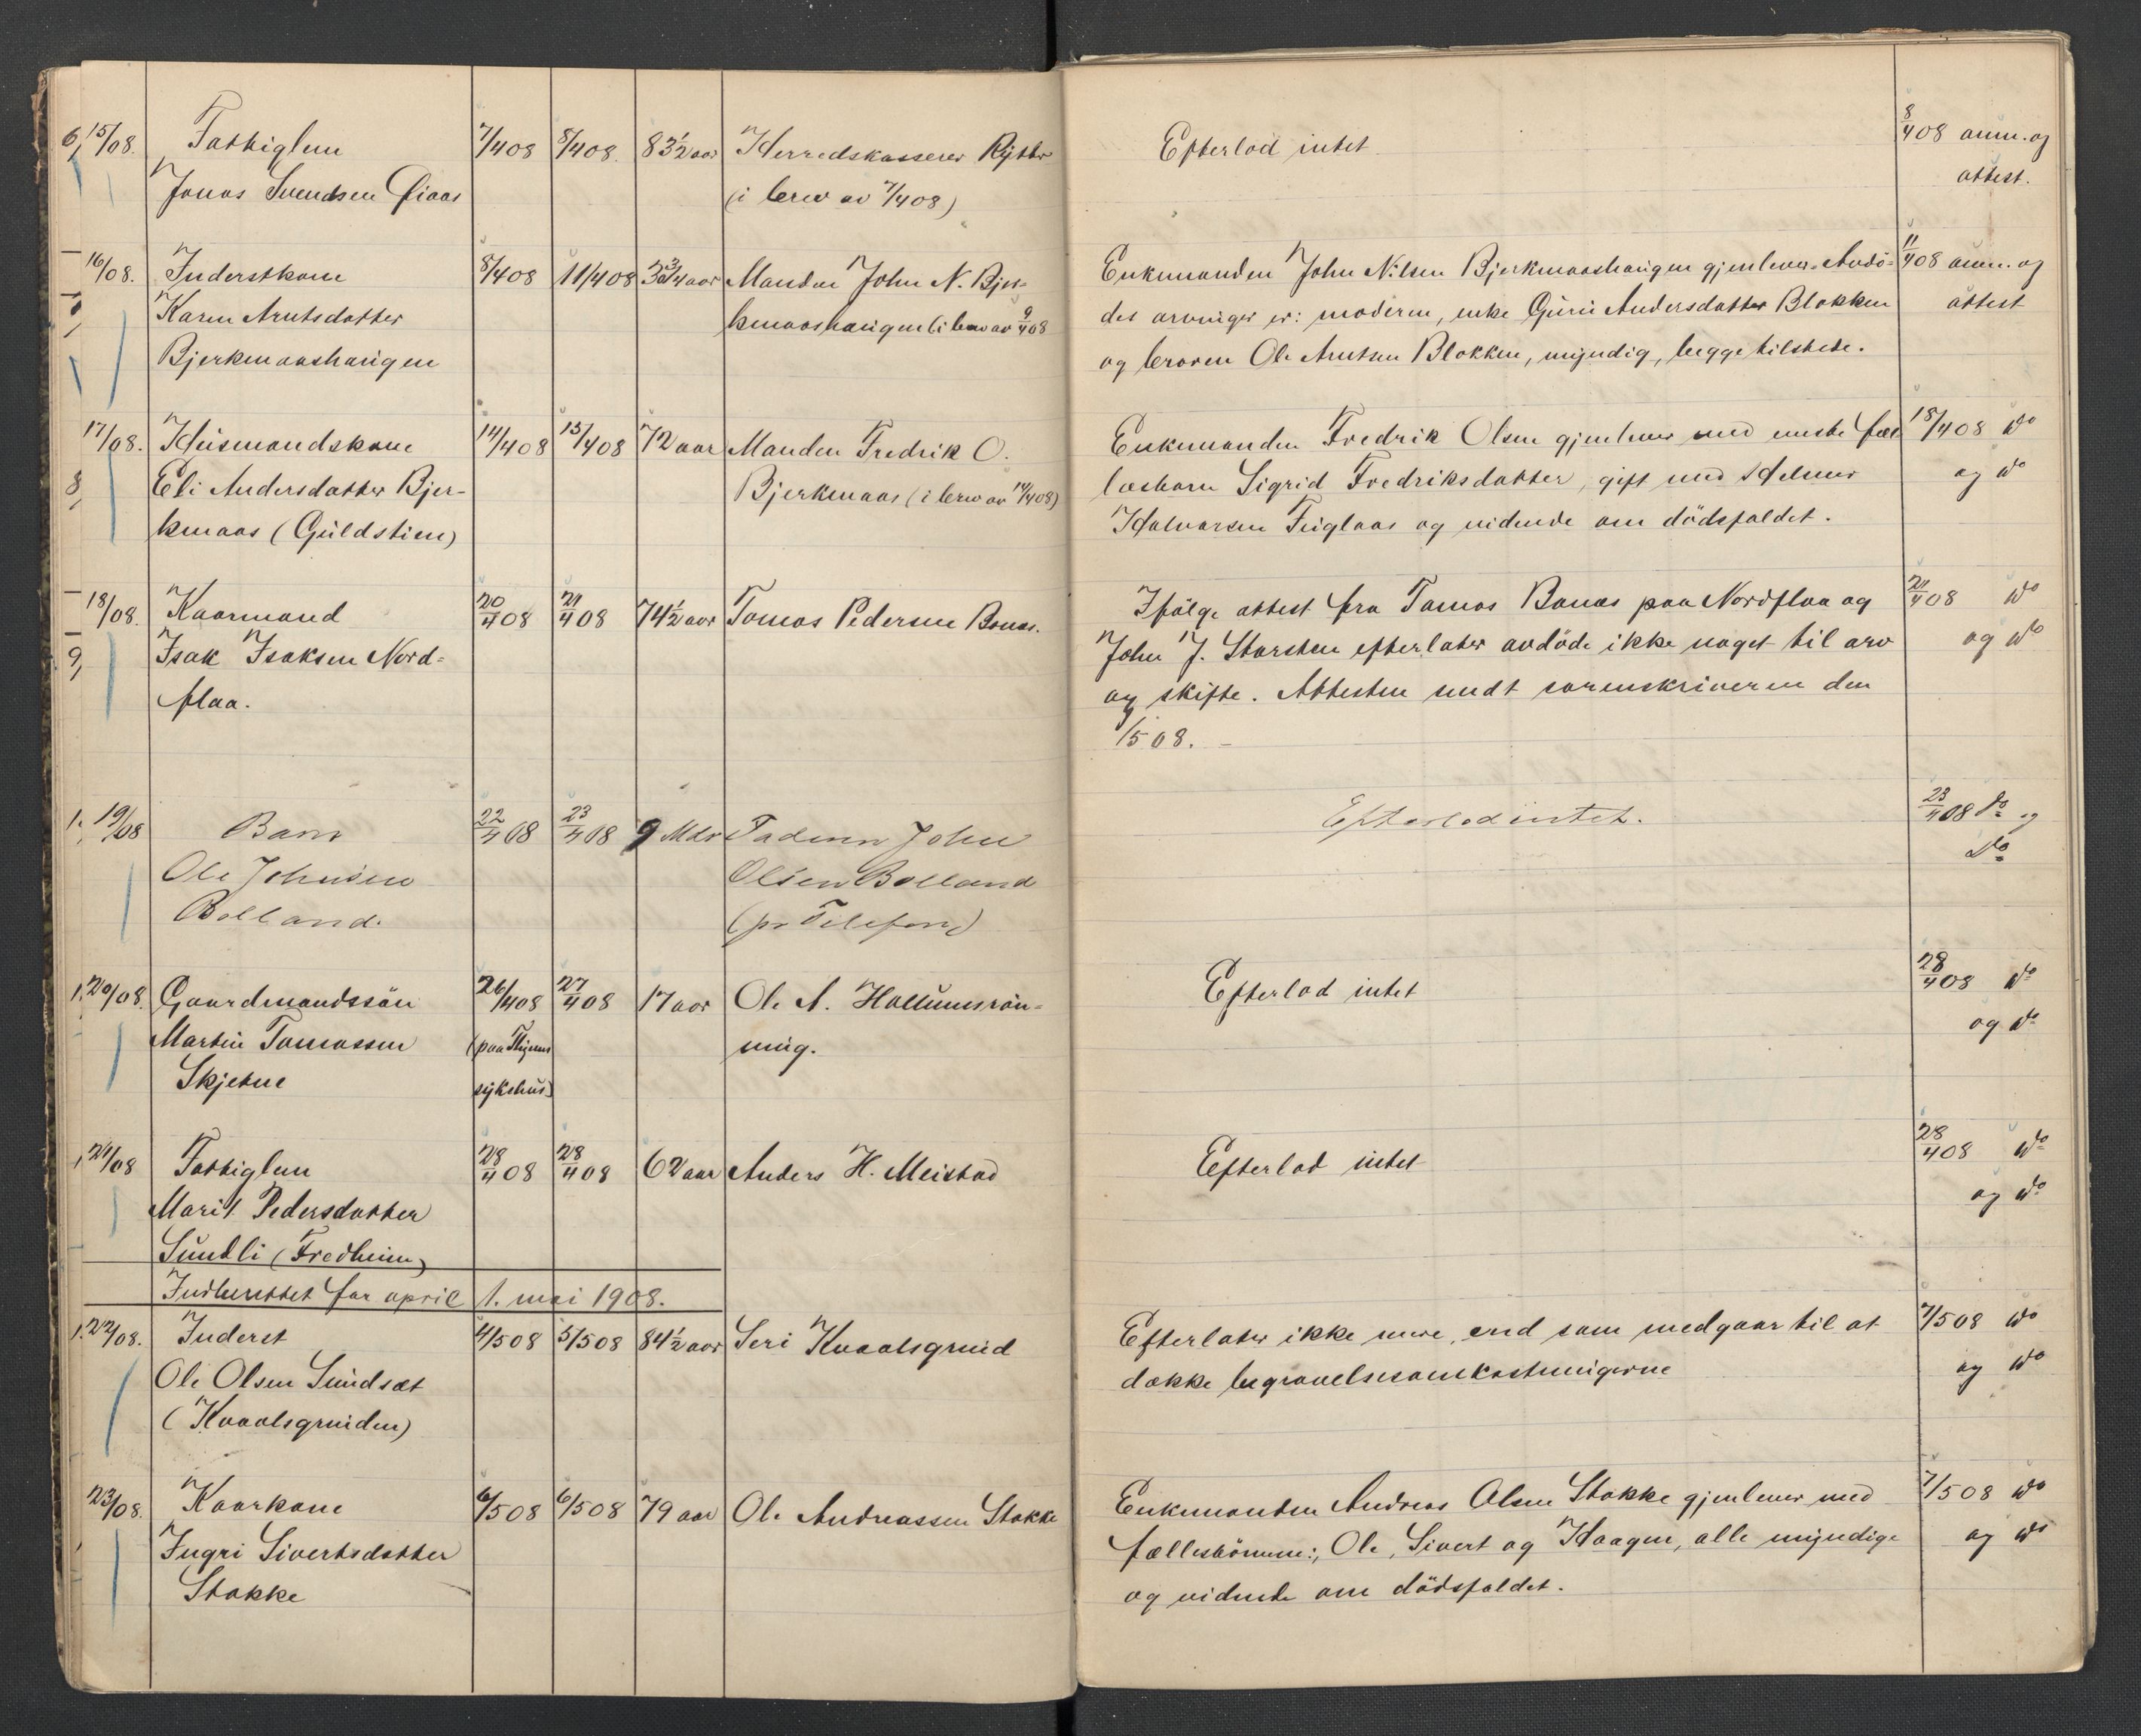 6, 15/08. Fattiglem 7/4 08 8/4 08. 83 1/2 aar Herredskasserer Rytter Efterlod intet 8/4 08 anm. og
Jonas Svendsen Øiaas (i brev av 7/4 08) attest.
16/08. Inderstkone 8/4 08 11/4 08 Manden John N. Bjer- Enkemanden John Nilsen Bjerkmaashaugen gjenlever. Avdö- 11/4 08 anm. og
Karen Arntsdatter kmaashaugen (i brev av 9/4 08 des arvinger er: moderen, enke Guru Andersdatter Blokken attest
Bjerkmaashaugen og broren Ole Arntsen Blokken, myndig, begge tilstede.
17/08. Husmandskone 14/4 08 15/4 08 72 aar Manden Fredrik O. Enkemanden Fredrik Olsen gjenlever med eneste fæl 15/4 08 do
8, Eli Andersdatter Bjer- Bjerkmaas (i brev av 14/4 08) lesbarn Sigrid Fredriksdatter, gift med Helmer og do
kmaas (Guldstien) Halvorsen Fuglaas og vidende om dödsfaldet.
18/08. Kaarmand 20/4 08 21/4 08 74 1/2 aar Tomas Pedersen Bonas. Ifölge attest fra Tomas Bonas paa Nordflaa og 21/4 08 do
9, Isak Isaksen Nord- John J. Storsten efterlater avdöde ikke noget til arv og do
flaa. og skifte. Attesten sendt sorenskriveren den
/5 08.
1. 19/08 Barn 22/4 08 23/4 08 9 Mdr Faderen John Efterlod intet. 23/4 08 do og
Ole Johnsen Olsen Bolland do
Bolland. (pr Telefon)
1. 20/08. Gaardmandssön 26/4 08 27/4 08 17 aar Ole A. Hallumsrön- Efterlod intet 28/4 08 do
Martin Tomassen (paa Thjems ning. og do
Skjetne sykehus)
21/08 Fattiglem 28/4 08 28/4 08 62 aar Anders H. Meistad Efterlod intet 28/4 08 do
Marit Pedersdatter og do
Sundli (Fredheim)
Indberettet for april 1. mai 1908.
1. 22/08. Inderst 4/5 08 5/5 08 84 1/2 aar Seri Kvaalsgrind Efterlater ikke mere, end som medgaar til at 7/5 08 do
Ole Olsen Sundset dække begravelsesomkostningerne og do
(Kvaalsgrinden)
23/08. Kaarkone 6/5 08 6/5 08 79 aar Ole Andreassen Stokke Enkemanden Andreas Olsen Stokke gjenlever med 7/5 08 do
Ingri Sivertsdatter fællesbörnene:, Ole, Sivert og Haagen, alle myndige og do
Stokke og vidende om dödsfaldet.